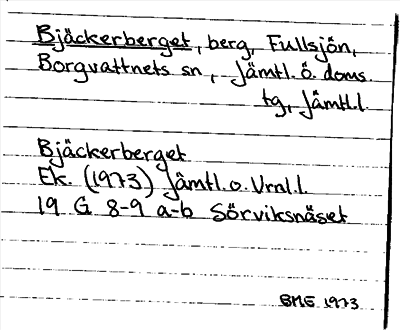 Bjäckerberget, berg, Fullsjön,
Borgvattnets sn, Jämtl. ö. doms.
tg, Jämtl.l.
Bjäckerberget
Ek. (1973) Jämtl. o. Vrnl.l.
19 G 8-9 a-b Sörviksnäset
BME 1973